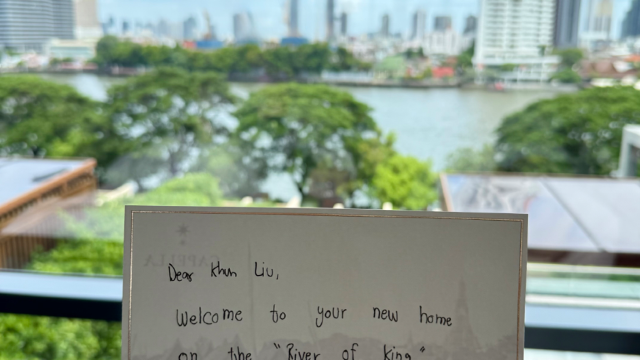 Dear Khun Liu,
Welcome to your new home
on the "River of king"